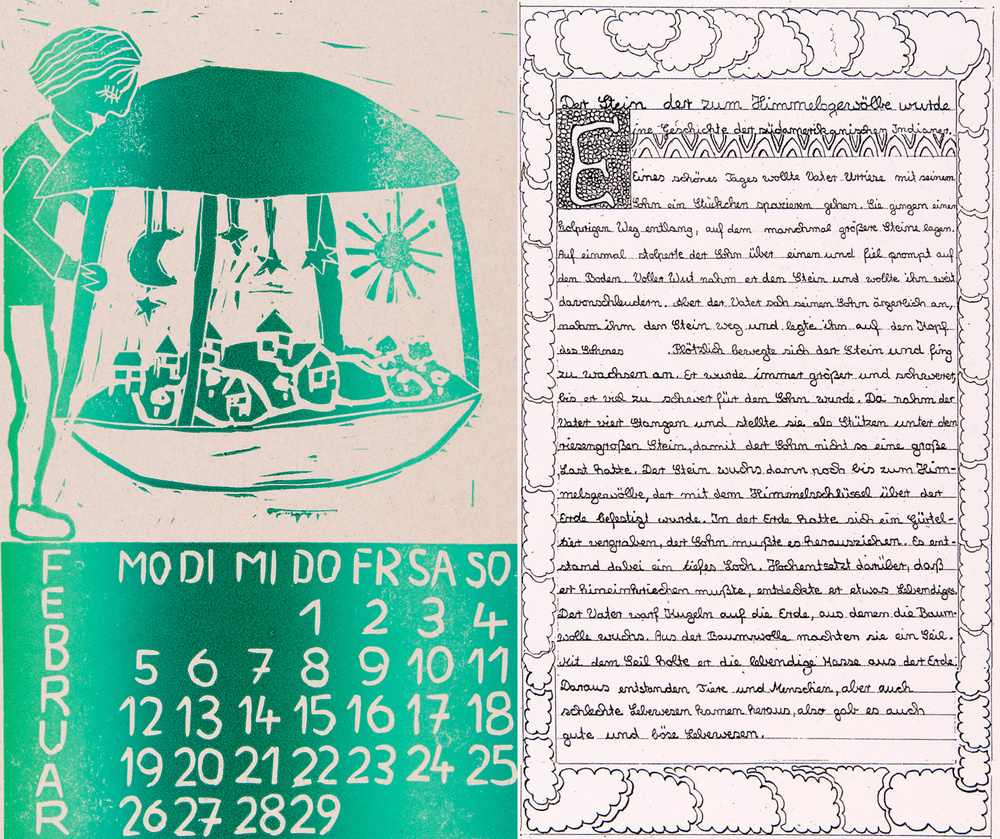 FEBRUAR
MO DI MI DO FR SA SO
1 2 3 4
5 6 7 8 9 10 11
12 13 14 15 16 17 18
19 20 21 22 23 24 25
26 27 28 29
Der Stein der zum Himmelsgewölbe wurde
Eine Geschichte der südamerikanischen Indianer.
Eines schönes Tages wollte Vater Urriese mit seinem
Sohn ein Stückchen spazieren gehen. Sie gingen einen
holprigen Weg entlang, auf dem manchmal größere Steine lagen.
Auf einmal stolperte der Sohn über einen und fiel prompt auf
den Boden. Voller Wut nahm er den Stein und wollte ihn weit
davonschleudern. Aber der Vater sah seinen Sohn ärgerlich an,
nahm ihm den Stein weg und legte ihm auf den Kopf
des Sohnes . Plötzlich bewegte sich der Stein und fing
zu wachsen an. Er wurde immer größer und schwerer,
bis er viel zu schwer für dem Sohn wurde. Da nahm der
Vater vier Stangen und stellte sie als Stützen unter den
riesengroßen Stein, damit der Sohn nicht so eine große
Last hatte. Der Stein wuchs dann noch bis zum Him-
melsgewölbe, der mit dem Himmelsschlüssel über der
Erde befestigt wurde. In der Erde hatte sich ein Gürtel-
tier vergraben, der Sohn mußte es herausziehen. Es ent-
stand dabei ein tiefes Loch. Hochentsetzt darüber, daß
er hineinkriechen mußte, entdeckte er etwas Lebendiges.
Der Vater warf Kugeln auf die Erde, aus denen die Baum-
wolle wuchs. Aus der Baumwolle machten sie ein Seil.
Mit dem Seil holte er die lebendige Masse aus der Erde.
Daraus entstanden Tiere und Menschen, aber auch
schlechte Lebewesen kamen heraus, also gab es auch
gute und böse Lebewesen.